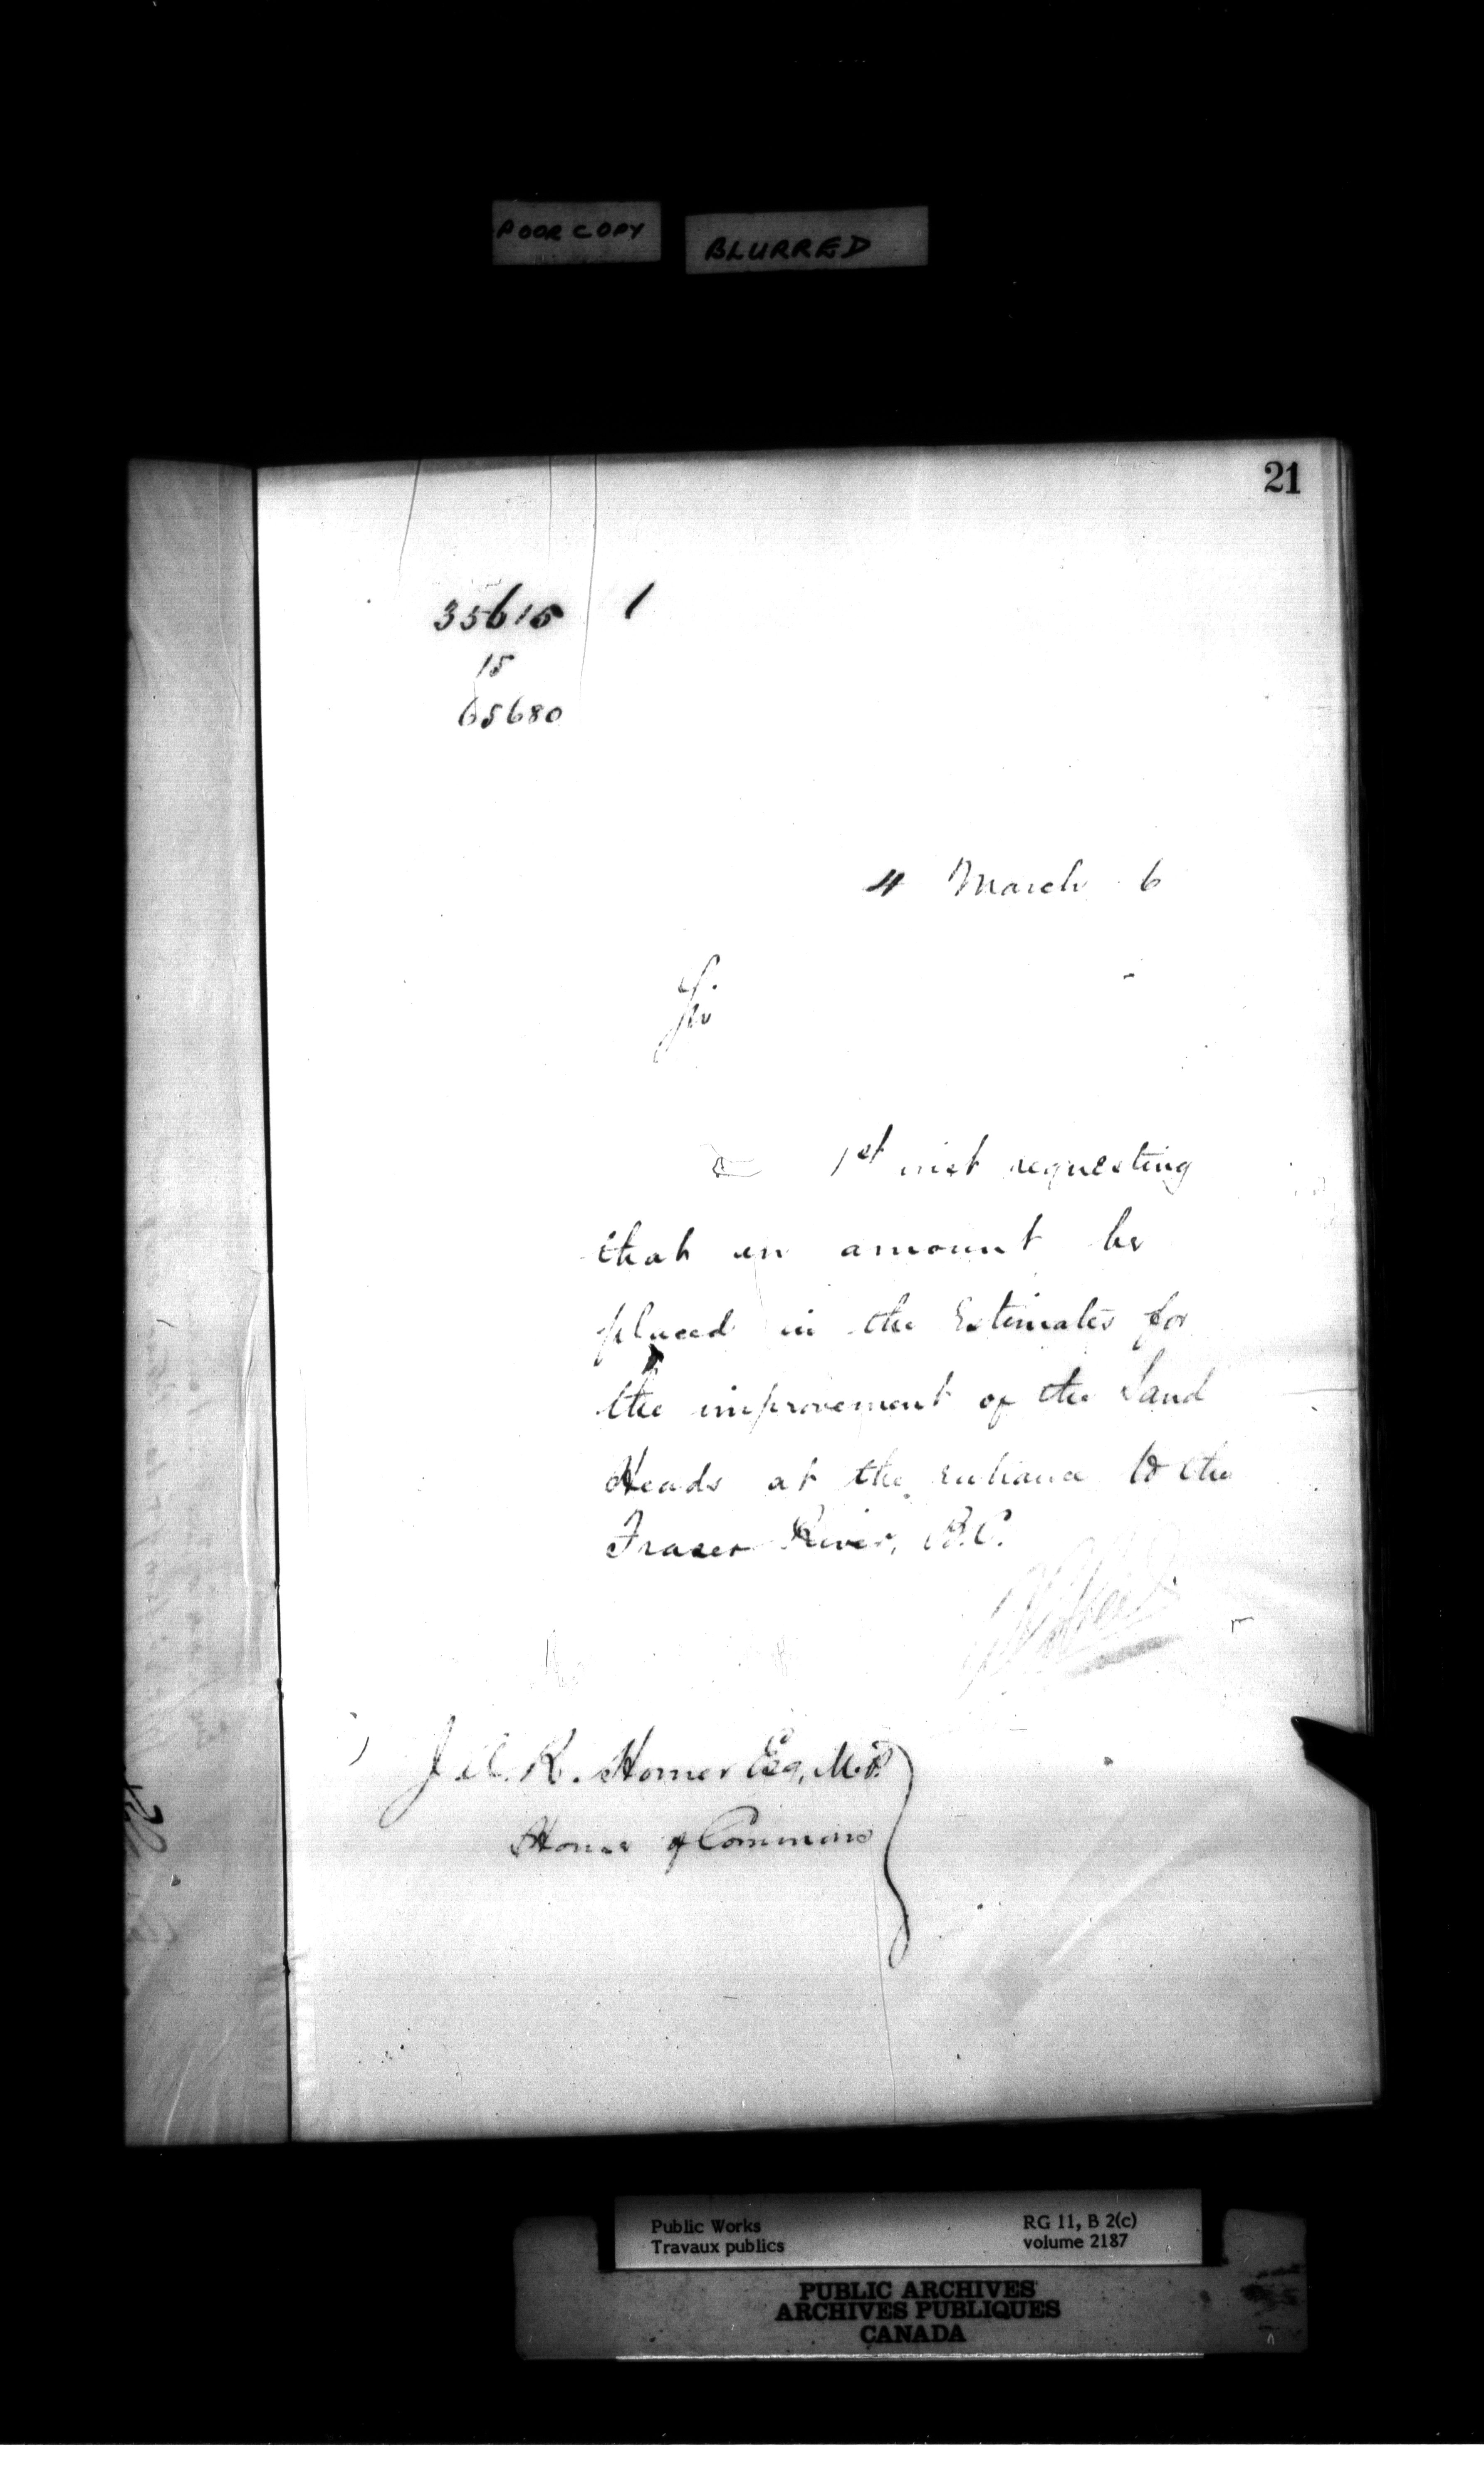 POOR COPY
BLURRED
21
35615 1
15
65680
4 March 6
Sir
1st inst requesting
that an amount be
placed in the Estimates for
the improvement of the Sand
Heads at the entrance to the
Fraser River, B.C.
J.A.R. Homer Esq, M.P.
House of Commons
Public Works
Travaux publics
RG 11, B 2(c)
volume 2187
PUBLIC ARCHIVES
ARCHIVES PUBLIQUES
CANADA